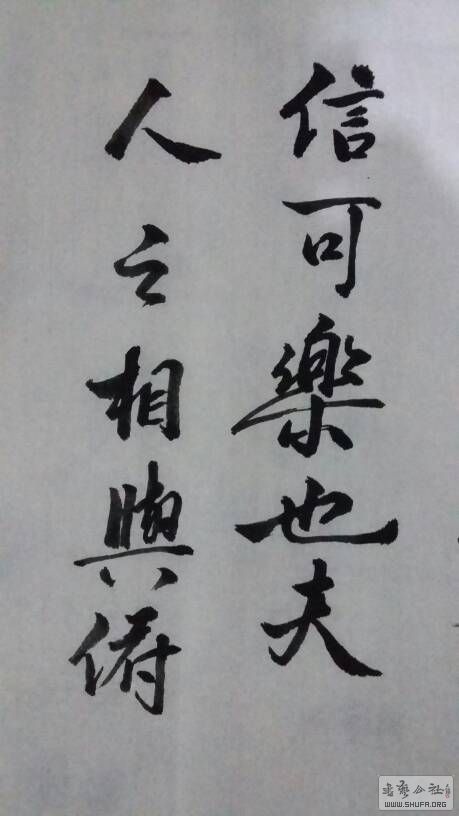 信可樂也夫
人之相與俯
書藝公社
WWW.SHUFA.ORG